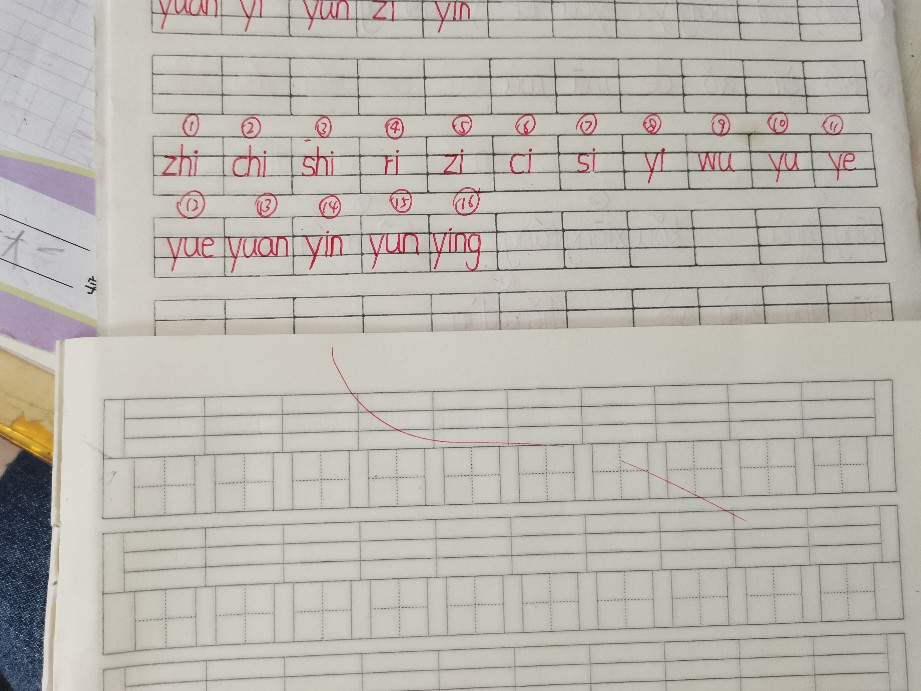 yuan yi yun zi yin
① ② ③ ④ ⑤ ⑥ ⑦ ⑧ ⑨ ⑩ ⑪
zhi chi shi ri zi ci si yi wu yu ye
⑫ ⑬ ⑭ ⑮ ⑯
yue yuan yin yun ying